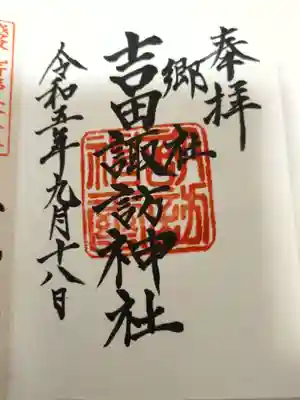 奉拝
郷社
吉田諏訪神社
令和五年九月十八日